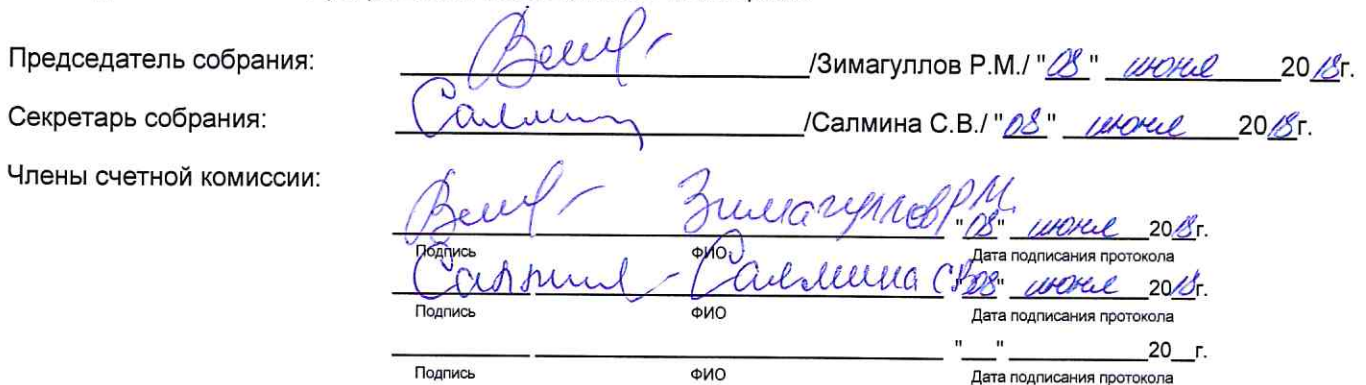 Председатель собрания: /Зимагуллов Р.М./ "08" июня 2018г.
Секретарь собрания: Салмина /Салмина С.В./ "08" июня 2018г.
Члены счетной комиссии:
Зимагуллов Р.М. "08" июня 2018г.
Подпись ФИО Дата подписания протокола
Салмина - Салмина С.В. "08" июня 2018г.
Подпись ФИО Дата подписания протокола
"__" 20__г.
Подпись ФИО Дата подписания протокола